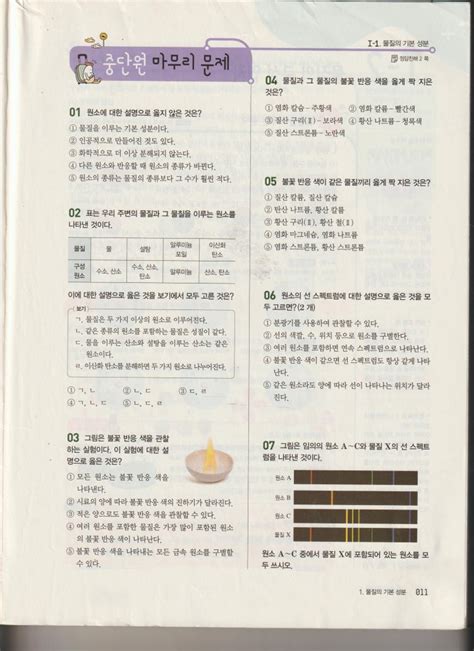 중단원 마무리 문제
Ⅰ-1. 물질의 기본 성분
정답친해 2 쪽
01 원소에 대한 설명으로 옳지 않은 것은?
① 물질을 이루는 기본 성분이다.
② 인공적으로 만들어진 것도 있다.
③ 화학적으로 더 이상 분해되지 않는다.
④ 다른 원소와 반응할 때 원소의 종류가 바뀐다.
⑤ 원소의 종류는 물질의 종류보다 그 수가 훨씬 적다.
02 표는 우리 주변의 물질과 그 물질을 이루는 원소를
나타낸 것이다.
물질 물 설탕 알루미늄 포일 이산화 탄소
구성 원소 수소, 산소 수소, 산소, 탄소 알루미늄 산소, 탄소
이에 대한 설명으로 옳은 것을 보기에서 모두 고른 것은?
보기
ㄱ. 물질은 두 가지 이상의 원소로 이루어진다.
ㄴ. 같은 종류의 원소를 포함하는 물질은 성질이 같다.
ㄷ. 물을 이루는 산소와 설탕을 이루는 산소는 같은
원소이다.
ㄹ. 이산화 탄소를 분해하면 두 가지 원소로 나누어진다.
① ㄱ, ㄴ ② ㄴ, ㄷ ③ ㄷ, ㄹ
④ ㄱ, ㄴ, ㄹ
03 그림은 불꽃 반응 색을 관찰
하는 실험이다. 이 실험에 대한 설
명으로 옳은 것은?
① 모든 원소는 불꽃 반응 색을
나타낸다.
② 시료의 양에 따라 불꽃 반응 색의 진하기가 달라진다.
③ 적은 양으로도 불꽃 반응 색을 관찰할 수 있다.
④ 여러 원소를 포함한 물질은 가장 많이 포함된 원소
의 불꽃 반응 색이 나타난다.
⑤ 불꽃 반응 색을 나타내는 모든 금속 원소를 구별할
수 있다.
04 물질과 그 물질의 불꽃 반응 색을 옳게 짝 지은
것은?
① 염화 칼슘 - 주황색 ② 염화 칼륨 - 빨간색
③ 질산 구리(Ⅱ) - 보라색 ④ 황산 나트륨 - 청록색
⑤ 질산 스트론튬 - 노란색
05 불꽃 반응 색이 같은 물질끼리 옳게 짝 지은 것은?
① 질산 칼륨, 질산 칼슘
② 탄산 나트륨, 황산 칼륨
③ 황산 구리(Ⅱ), 황산 철(Ⅱ)
④ 염화 마그네슘, 염화 나트륨
⑤ 염화 스트론튬, 황산 스트론튬
06 원소의 선 스펙트럼에 대한 설명으로 옳은 것을 모
두 고르면?(2 개)
① 분광기를 사용하여 관찰할 수 있다.
② 선의 색깔, 수, 위치 등으로 원소를 구별한다.
③ 여러 원소를 포함하면 연속 스펙트럼으로 나타난다.
④ 불꽃 반응 색이 같으면 선 스펙트럼도 항상 같게 나타
난다.
⑤ 같은 원소라도 양에 따라 선이 나타나는 위치가 달라
진다.
07 그림은 임의의 원소 A~C와 물질 X의 선 스펙트
럼을 나타낸 것이다.
원소 A
원소 B
원소 C
물질 X
원소 A~C 중에서 물질 X에 포함되어 있는 원소를 모
두 쓰시오.
1. 물질의 기본 성분 011